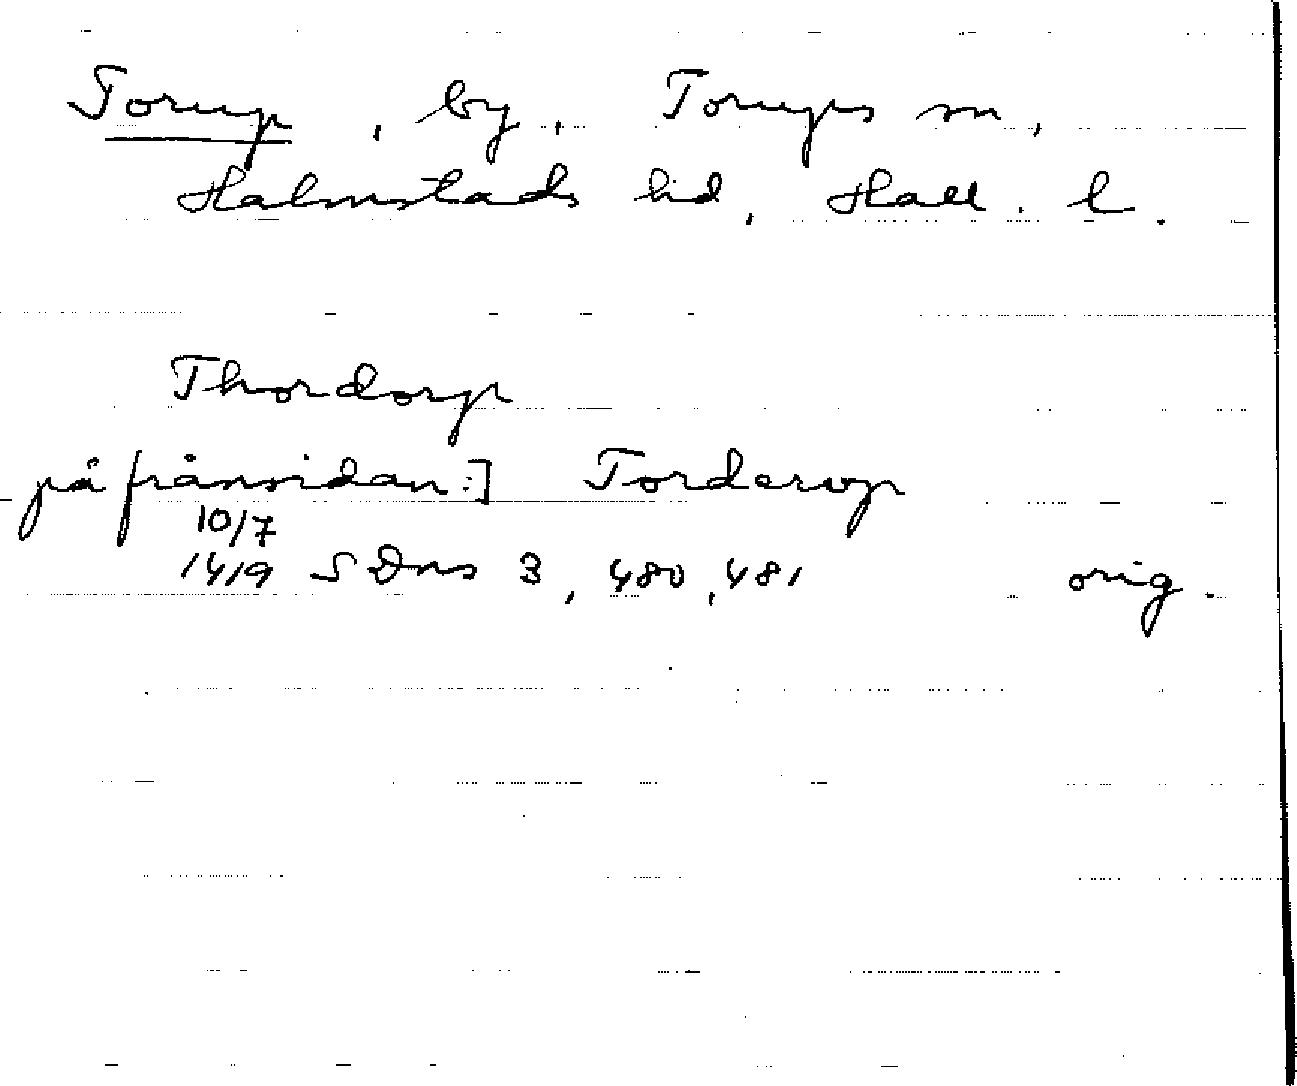 Torup, by, Torups sn,
Halmstads hd, Hall. l.
Thordorp
på frånsidan:] Torderop
10/7
1419 SDns 3, 480, 481 orig.